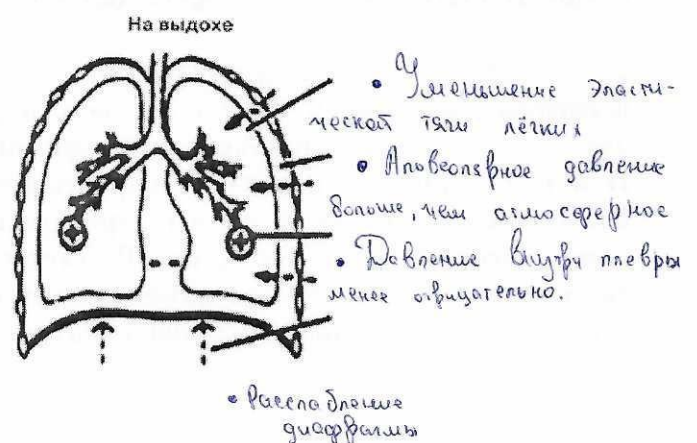 На выдохе
• Уменьшение эласти-
ческой тяги лёгких
• Альвеолярное давление
больше, чем атмосферное
• Давление внутри плевры
менее отрицательно.
• Расслабление
диафрагмы